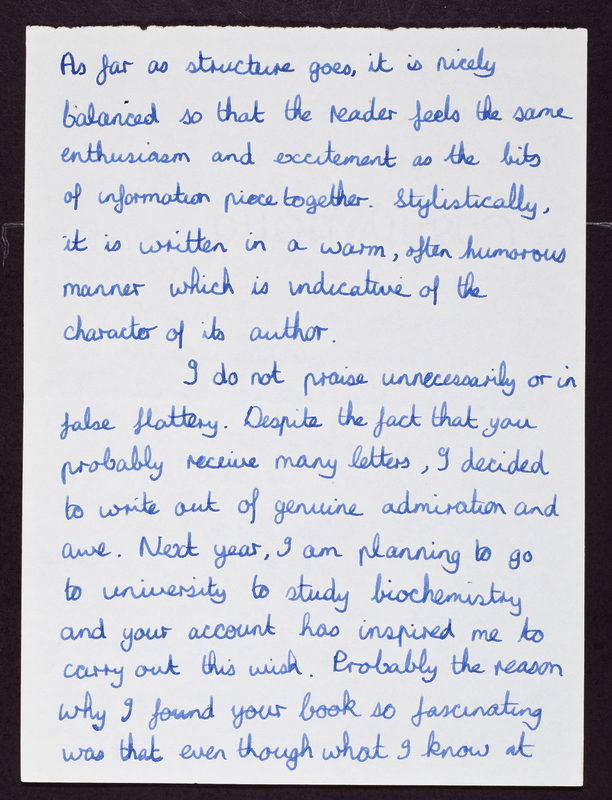 As far as structure goes, it is nicely
balanced so that the reader feels the same
enthusiasm and excitement as the bits
of information piece together. Stylistically,
it is written in a warm, often humorous
manner which is indicative of the
character of its author.
I do not praise unnecessarily or in
false flattery. Despite the fact that you
probably receive many letters, I decided
to write out of genuine admiration and
awe. Next year, I am planning to go
to university to study biochemistry
and your account has inspired me to
carry out this wish. Probably the reason
why I found your book so fascinating
was that even though what I know at